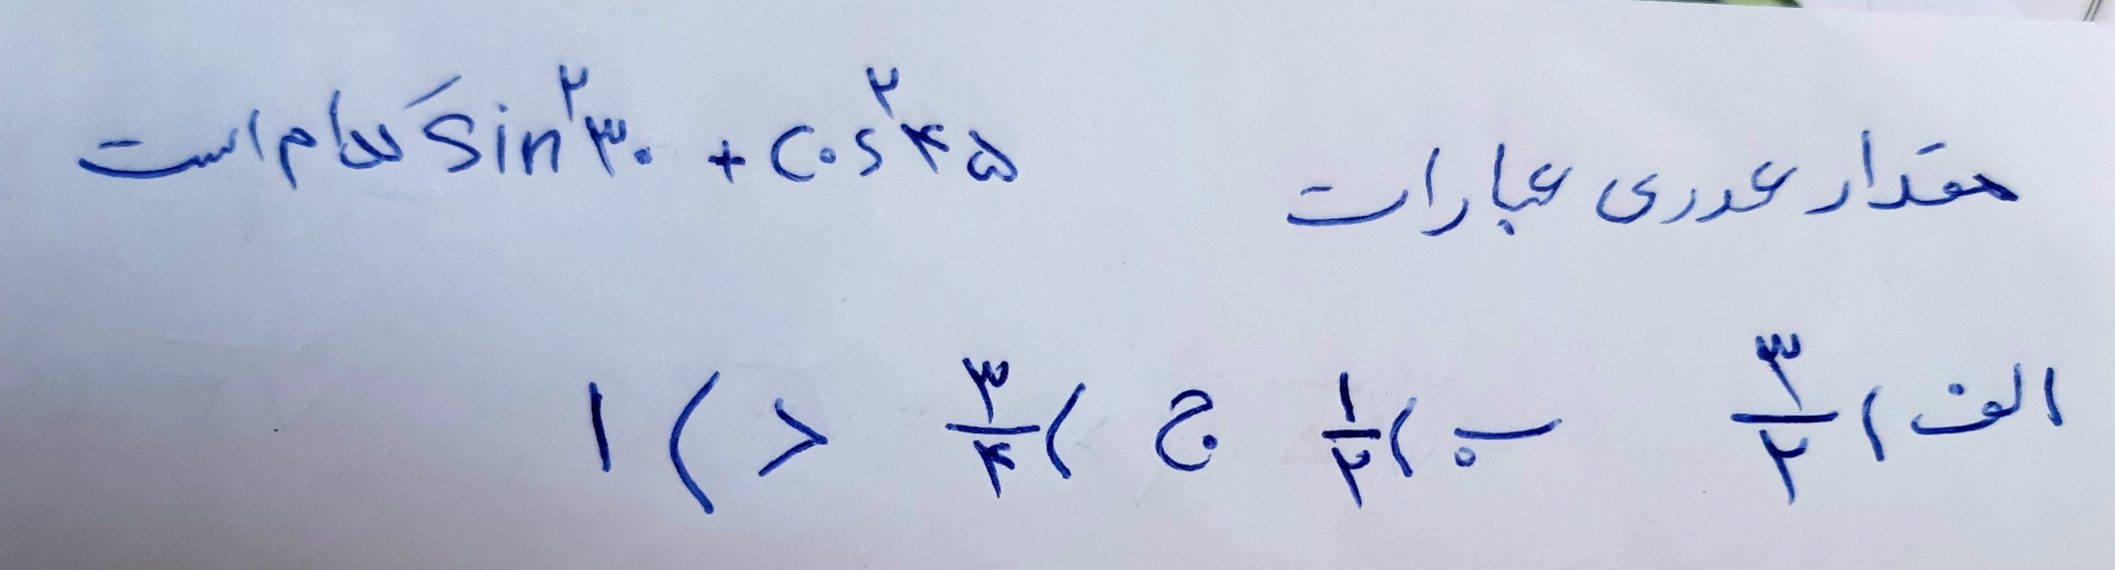 مقدار عددی عبارات sin²۳۰ + cos²۴۵ کدام است
الف) ۳/۲ ب) ۱/۲ ج) ۳/۴ د) ۱